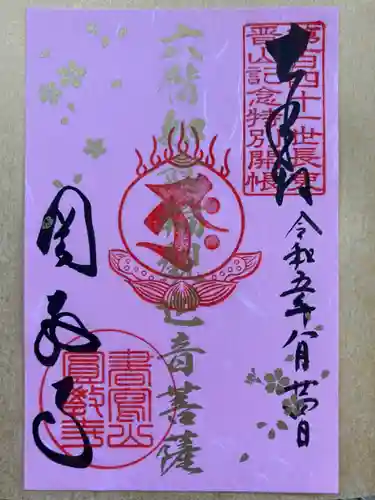 奉拝
第百四十一世長吏
晋山記念特別開帳
令和五年八月廿四日
六臂如意輪観世音菩薩
圓教寺
書寫山
圓教寺